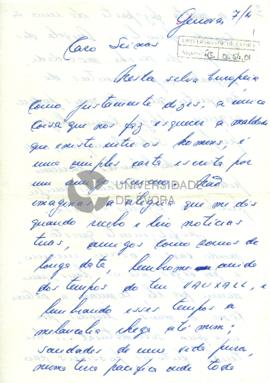 Genova, 7/
Caro Seixas
Nesta selva Europeia
como justamente dizes, a única
coisa que nos faz esquecer a maldade
que existe entre os homens, é
uma simples carta escrita por
um amigo
UNIVERSIDADE
DE ÉVORA
imaginas a alegria que me das
quando recebo e leio noticias
tuas, amigos como somos de
longa date, lembro-me ainda
dos tempos do teu VAUXALL, e
lembrando esses tempos a
melancolia chega até mim;
saudades de uma vida pura,
numa terra pacifica onde todo